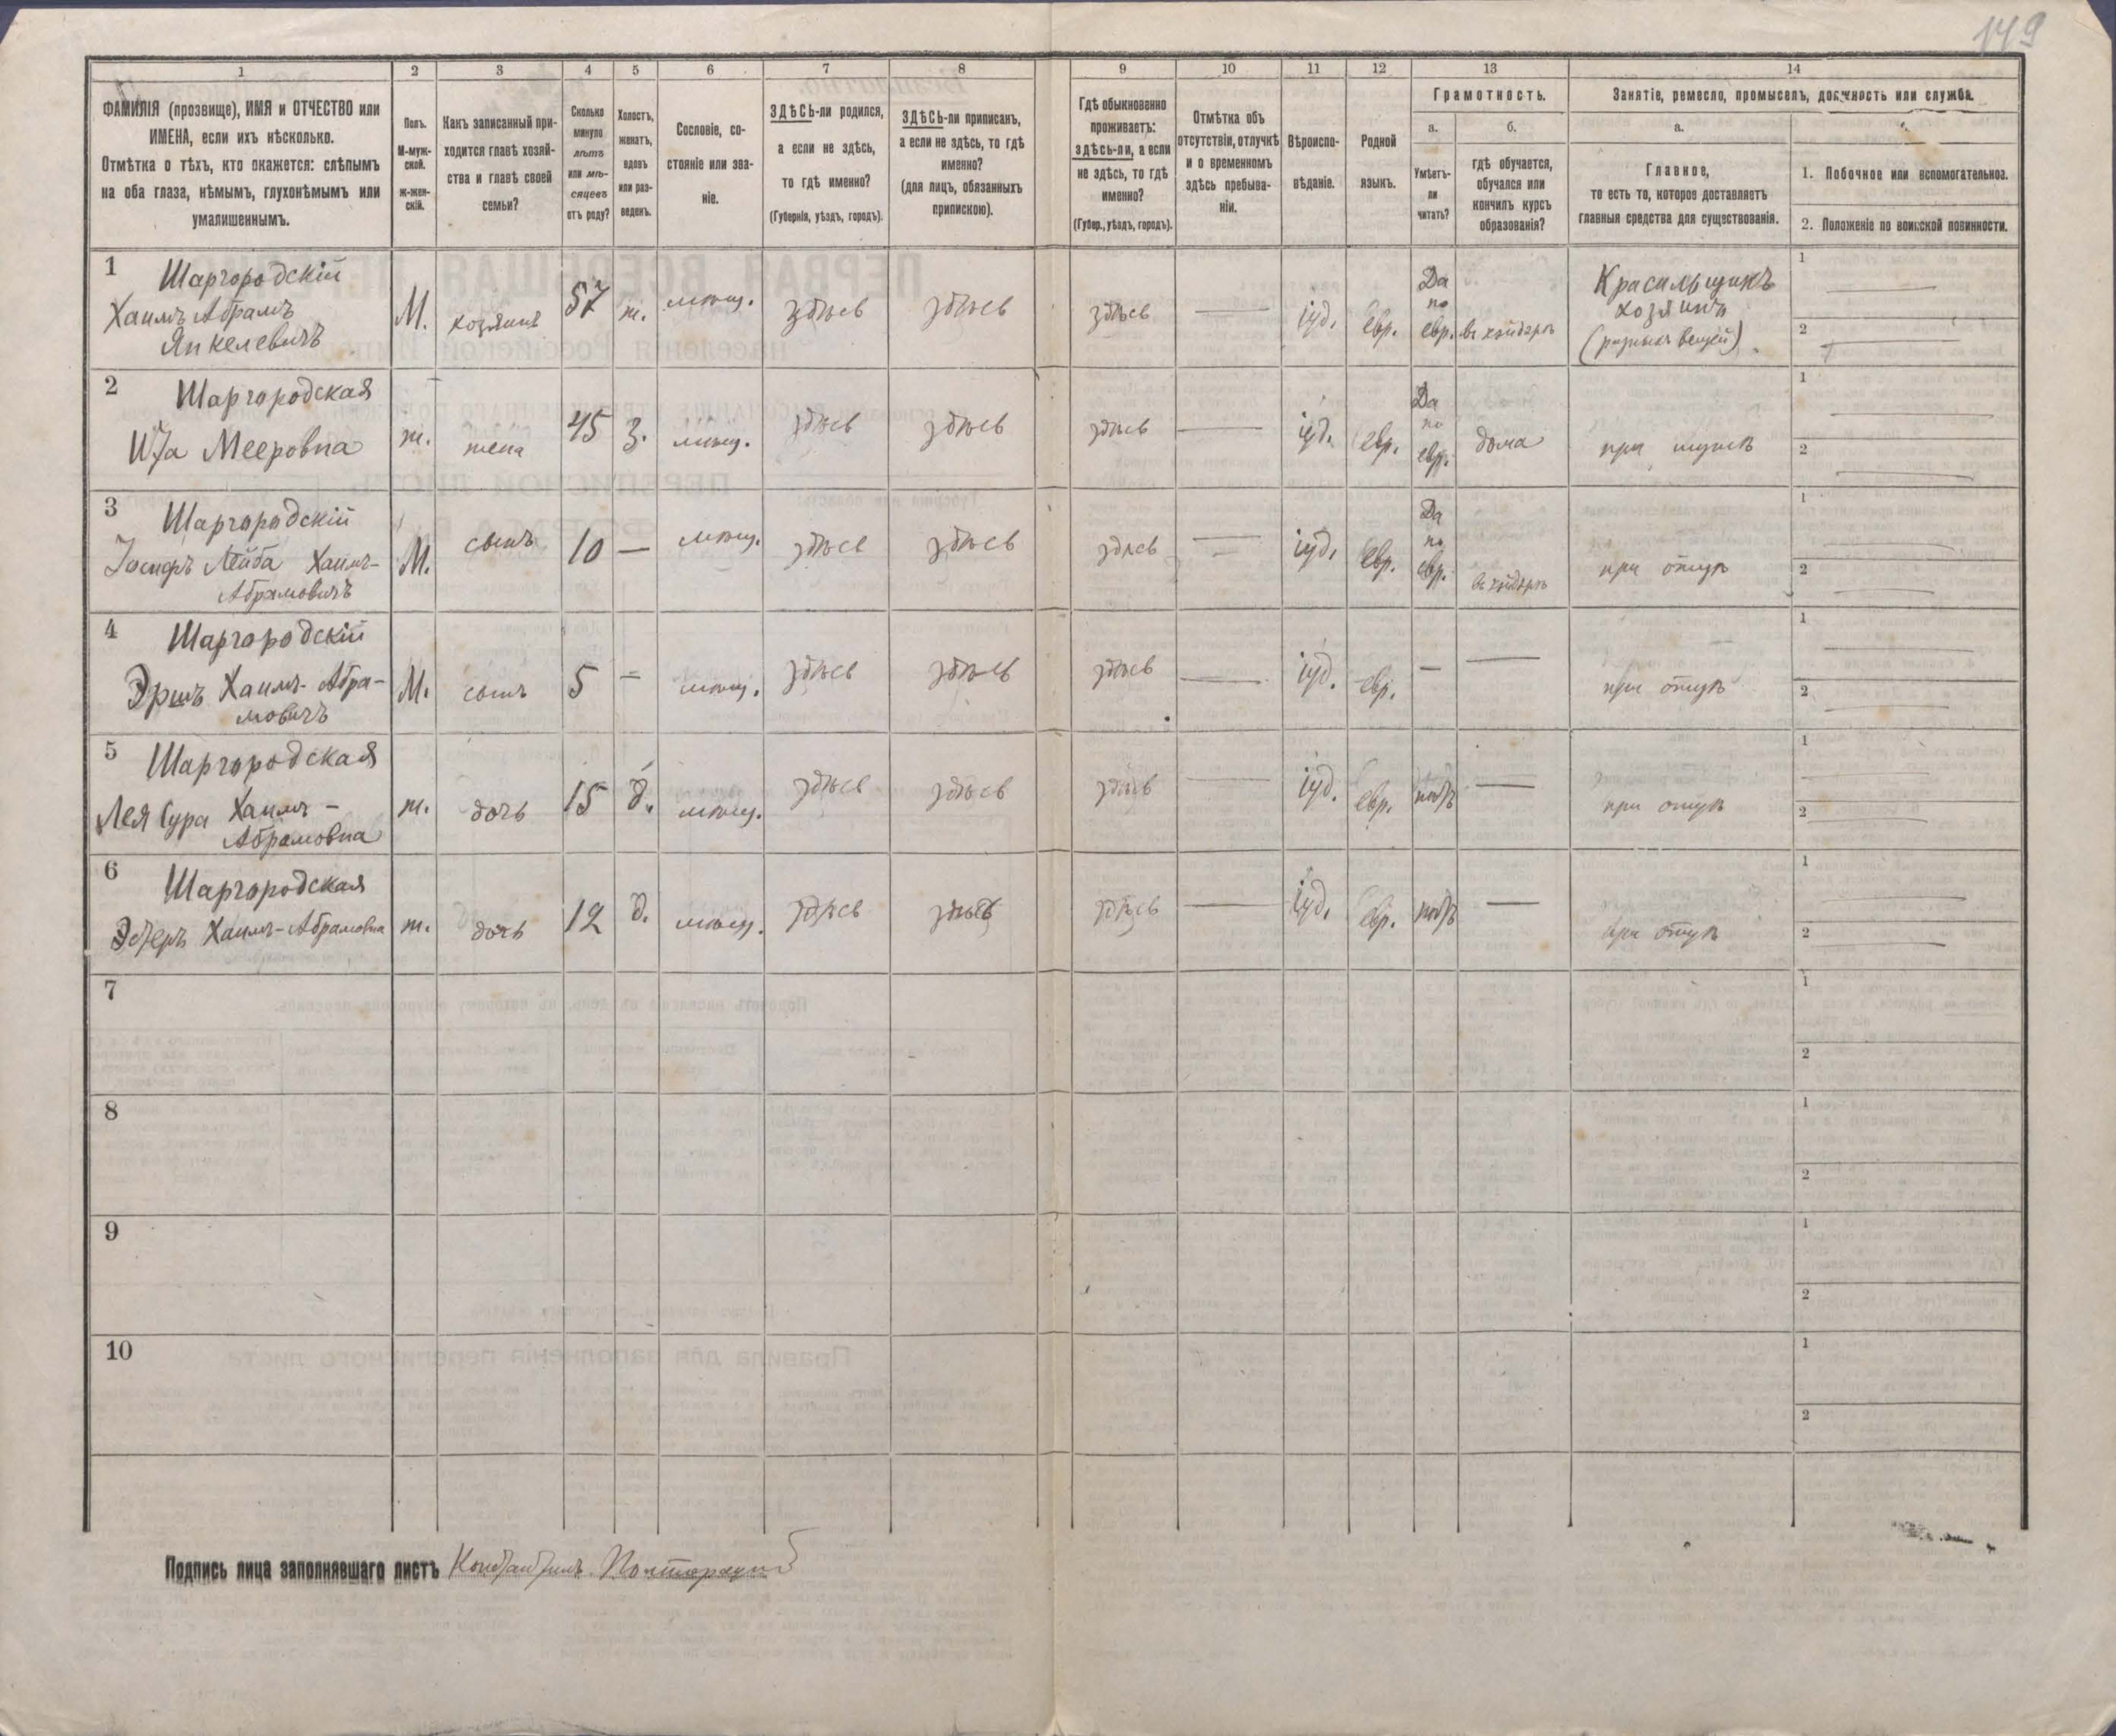 149
1
2
3
4
5
6
7
8
9
10
11
12
13
14
ФАМИЛІЯ (прозвище), ИМЯ и ОТЧЕСТВО или
ИМЕНА, если ихъ нѣсколько.
Отмѣтка о тѣхъ, кто окажется: слѣпымъ
на оба глаза, нѣмымъ, глухонѣмымъ или
умалишеннымъ.
Полъ.
М-муж-
ской.
ж-жен-
скій.
Какъ записанный при-
ходится главѣ хозяй-
ства и главѣ своей
семьи?
Сколько
минуло
лѣтъ
или мѣ-
сяцевъ
отъ роду?
Холостъ,
женатъ,
вдовъ
или раз-
веденъ.
Сословіе, со-
стояніе или зва-
ніе.
ЗДѢСЬ-ли родился,
а если не здѣсь,
то гдѣ именно?
(Губернія, уѣздъ, городъ).
ЗДѢСЬ-ли приписанъ,
а если не здѣсь, то гдѣ
именно?
(для лицъ, обязанныхъ
припискою).
Гдѣ обыкновенно
проживаетъ:
здѣсь-ли, а если
не здѣсь, то гдѣ
именно?
(Губер., уѣздъ, городъ).
Отмѣтка объ
отсутствіи, отлучкѣ
и о временномъ
здѣсь пребыва-
ніи.
Вѣроиспо-
вѣданіе.
Родной
языкъ.
Грамотность.
а.
Умѣетъ-
ли
читать?
б.
гдѣ обучается,
обучался или
кончилъ курсъ
образованія?
Занятіе, ремесло, промыселъ, должность или служба.
а.
Главное,
то есть то, которое доставляетъ
главныя средства для существованія.
1. Побочное или вспомогательное.
2. Положеніе по воинской повинности.
1
Шаргородскій
Хаимъ Абрамъ
Янкелевичъ
М.
хозяинъ
57
ж.
мѣщ.
здѣсь
здѣсь
здѣсь
—
іуд.
евр.
Да
по
евр.
въ хэйдерѣ
Красильщикъ
хозяинъ
(разныхъ вещей)
1 —
2 —
2
Шаргородская
Ита Мееровна
ж.
жена
45
з.
мѣщ.
здѣсь
здѣсь
здѣсь
—
іуд.
евр.
Да
по
евр.
дома
при мужѣ
1 —
2 —
3
Шаргородскій
Іосифъ Лейба Хаимъ-
Абрамовичъ
М.
сынъ
10
—
мѣщ.
здѣсь
здѣсь
здѣсь
—
іуд.
евр.
Да
по
евр.
въ хэйдерѣ
при отцѣ
1 —
2 —
4
Шаргородскій
Эршъ Хаимъ-Абра-
мовичъ
М.
сынъ
5
—
мѣщ.
здѣсь
здѣсь
здѣсь
—
іуд.
евр.
—
—
при отцѣ
1 —
2 —
5
Шаргородская
Лея Сура Хаимъ-
Абрамовна
ж.
дочь
15
д.
мѣщ.
здѣсь
здѣсь
здѣсь
—
іуд.
евр.
нѣтъ
—
при отцѣ
1 —
2 —
6
Шаргородская
Эстеръ Хаимъ-Абрамовна
ж.
дочь
12
д.
мѣщ.
здѣсь
здѣсь
здѣсь
—
іуд.
евр.
нѣтъ
—
при отцѣ
1 —
2 —
7
1
2
8
1
2
9
1
2
10
1
2
Подпись лица заполнявшаго листъ Константинъ